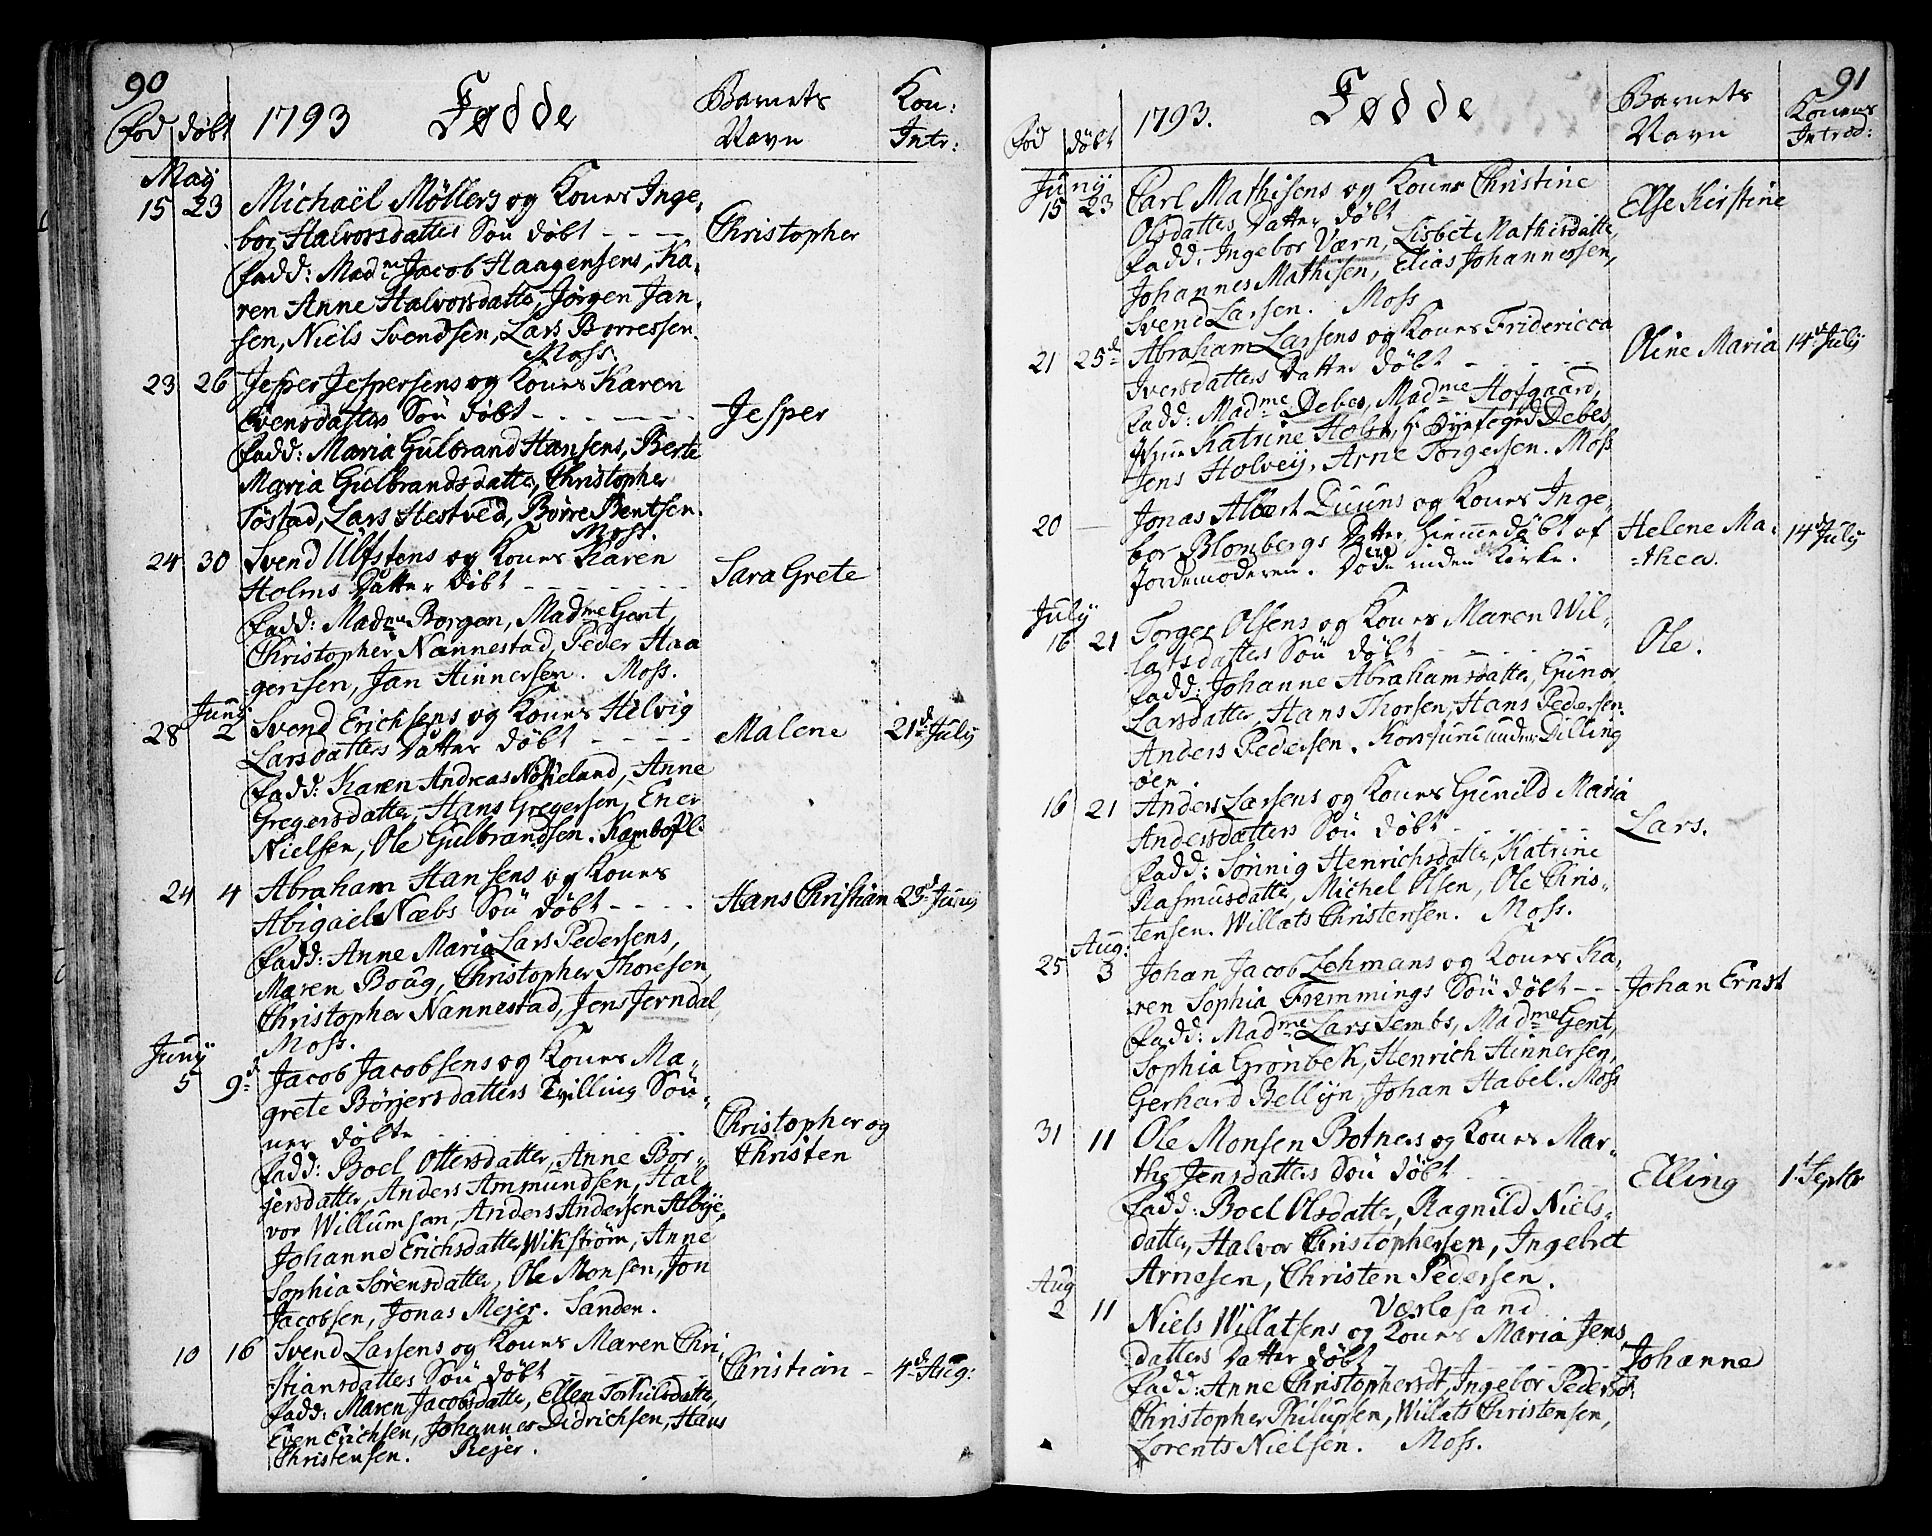 90
Fød døbt 1793 Fødde Barnets Navn Kon: Intr:
May
15 23 Michaël Möllers og Kones Inge-
bor Halvorsdatters Søn døbt - - - - Christopher
Fadd: Madme Jacob Haagensens, Ka-
ren Anne Halvorsdatter, Jörgen Jan-
sen, Niels Svendsen, Lars Borressen.
Moss.
23 26 Jesper Jespersens og Kones Karen
Evensdatters Søn døbt - - - - - - Jesper
Fadd: Maria Gulbrand Hansens, Berte
Maria Gulbrandsdatter, Christopher
Töstad, Lars Hestved, Börre Bentsen.
Moss.
24 30 Svend Ulfstens og Kones Karen
Holms Datter døbt - - - - - - Sara Grete
Fadd: Madme Borgen, Madme Gent,
Christopher Nannestad, Peder Haa
gensen, Jan Hinnersen. Moss.
Juny
28 2 Svend Erichsens og Kones Helvig
Larsdatters Datter døbt - - - - Malene 21d July
Fadd: Karen Andreas Nökeland, Anne
Gregersdatter, Hans Gregersen, Ener
Nielsen, Ole Gulbrandsen. Kambo Pl:
24 4 Abraham Hansens og Kones
Abigael Næbs Søn døbt - - - - Hans Christian 23d Juny
Fadd: Anne Maria Lars Pedersens,
Maren Boug, Christopher Thoresen,
Christopher Nannestad, Jens Jerndal,
Moss.
Juny
5 9d Jacob Jacobsens og Kones Ma-
grete Börjersdatters Tvilling Søn-
ner døbte Christopher og
Christen
Fadd: Boel Ottersdatter, Anne Bör-
jersdatter, Anders Ammundsen, Hal
vor Willumsen, Anders Andersen Albye,
Johanne Erichsdatter Wikström, Anne
Sophia Sörensdatter, Ole Monsen, Jon
Jacobsen, Jonas Mejer. Sanden.
10 16 Svend Larsens og Kones Maren Chri-
stiansdatters Søn døbt Christian - 4d Aug:
Fadd: Maren Jacobsdatter, Ellen Torkilsdatter,
Even Erichsen, Johannes Didrichsen, Hans
Christensen. Rejer.
91
Fød døbt 1793. Fødde Barnets Navn Konens Introd:
Juny
15 23 Carl Mathisens og Kones Christine
Olsdatters Datter døbt Else Kirstine
Fadd: Ingebor Værn, Lisbet Mathisdatter,
Johannes Mathisen, Elias Johannessen,
Svend Larsen. Moss
21 25d Abraham Larsens og Kones Fridericca
Iversdatters Datter døbt - - - - Oline Maria 14d July
Fadd: Madme Debes, Madme Hofgaard,
Katrine Holst, Debes,
Jens Holvey, Arne Torgersen. Moss
20 - Jonas Albert Duuns og Kones Inge-
bor Blombergs Datter hiemmedøbt af Helene Ma- 14d July
Jordemoderen. Døde inden Kirke. -thea.
July
16 21 Torger Olsens og Kones Maren Wil-
latsdatters Søn døbt Ole.
Fadd: Johanne Abrahamsdatter, Gunor
Larsdatter, Hans Thorsen, Hans Pedersen,
Anders Pedersen. under Dilling
öen
16 21 Anders Larsens og Kones Gunild Maria
Andersdatters Søn døbt Lars.
Fadd: Sönnig Henrichsdatter, Katrine
Rasmusdatter, Michel Olsen, Ole Chris-
tensen. Willats Christensen. Moss.
Aug:
25 3 Johan Jacob Lehmans og Kones Ka-
ren Sophia Fremmings Søn døbt - - Johan Ernst
Fadd: Madme Lars Sembs, Madme Gent,
Sophia Grönbek, Henrich Hinnersen,
Gerhard Bellyn, Johan Stabel. Moss
31 11 Ole Monsen Botners og Kones Mar-
the Jensdatters Søn døbt Elling 1 Septbr
Fadd: Boel Olsdatter, Ragnild Niels-
datter, Halvor Christophersen, Ingebret
Arnesen, Christen Pedersen.
Værlesand
Aug
2 11 Niels Willatsens og Kones Maria Jens
datters Datter døbt Johanne
Fadd: Anne Christophersdt, Ingebor Pedersdt.
Christopher Philupsen, Willats Christensen,
Lorents Nielsen. Moss.